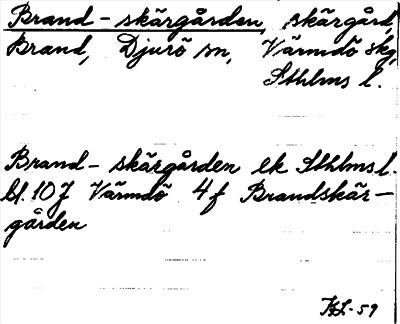 Brand-skärgården, skärgård,
Brand, Djurö sn, Värmdö skg,
Sthlms l.
Brand-skärgården ek Sthlms l.
bl. 10 J Värmdö 4f Brandskär-
gården